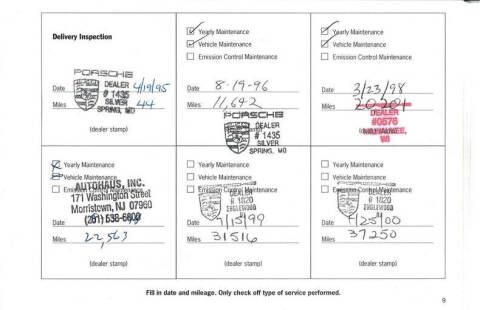 Delivery Inspection
PORSCHE
DEALER
# 1435
SILVER
SPRING, MD
Date 4/19/95
Miles 44
(dealer stamp)
Yearly Maintenance
Vehicle Maintenance
Emission Control Maintenance
Date 8-19-96
Miles 11,642
PORSCHE
DEALER
# 1435
SILVER
SPRING, MD
Yearly Maintenance
Vehicle Maintenance
Emission Control Maintenance
Date 3/23/98
Miles 20201
DEALER
#0576
MILWAUKEE,
WI
(dealer stamp)
Yearly Maintenance
Vehicle Maintenance
Emission Control Maintenance
AUTOHAUS, INC.
171 Washington Street
Morristown, NJ 07960
Date
Miles 22,563
(dealer stamp)
Yearly Maintenance
Vehicle Maintenance
Emission Control Maintenance
DEALER
# 1820
ENGLEWOOD
Date /15/99
Miles 31516
(dealer stamp)
Yearly Maintenance
Vehicle Maintenance
Emission Control Maintenance
DEALER
# 1820
ENGLEWOOD
Date /25/00
Miles 37250
(dealer stamp)
Fill in date and mileage. Only check off type of service performed.
9